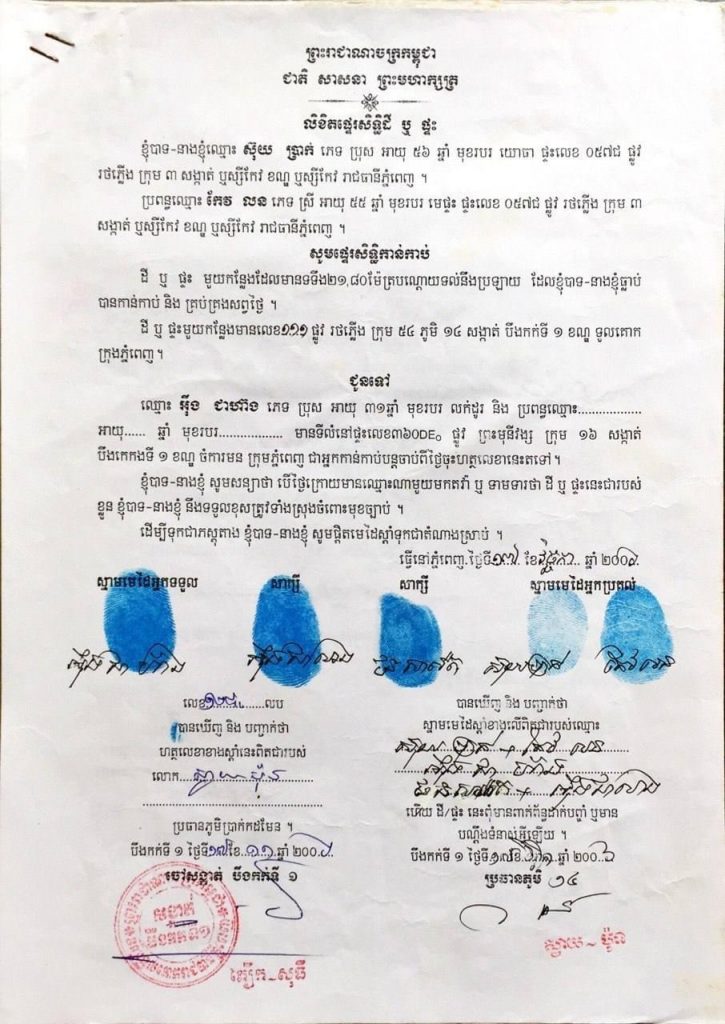 ព្រះរាជាណាចក្រកម្ពុជា
ជាតិ សាសនា ព្រះមហាក្សត្រ
លិខិតផ្ទេរសិទ្ធិដី ឬ ផ្ទះ
ខ្ញុំបាទ-នាងខ្ញុំឈ្មោះ ស៊ុយ ប្រាក់ ភេទ ប្រុស អាយុ ៥៦ ឆ្នាំ មុខរបរ យោធា ផ្ទះលេខ ០៥៧ជ ផ្លូវ
រថភ្លើង ក្រុម ៣ សង្កាត់ ឬស្សីកែវ ខណ្ឌ ឬស្សីកែវ រាជធានីភ្នំពេញ ។
ប្រពន្ធឈ្មោះ កែវ លន ភេទ ស្រី អាយុ ៥៥ ឆ្នាំ មុខរបរ មេផ្ទះ ផ្ទះលេខ ០៥៧ជ ផ្លូវ រថភ្លើង ក្រុម ៣
សង្កាត់ ឬស្សីកែវ ខណ្ឌ ឬស្សីកែវ រាជធានីភ្នំពេញ ។
សូមផ្ទេរសិទ្ធិកាន់កាប់
ដី ឬ ផ្ទះ មួយកន្លែងដែលមានទទឹង២១,៨០ម៉ែត្របណ្តោយទល់នឹងប្រឡាយ ដែលខ្ញុំបាទ-នាងខ្ញុំធ្លាប់
បានកាន់កាប់ និង គ្រប់គ្រងសព្វថ្ងៃ ។
ដី ឬ ផ្ទះមួយកន្លែងមានលេខ១១១ ផ្លូវ រថភ្លើង ក្រុម ៥៤ ភូមិ ១៤ សង្កាត់ បឹងកក់ទី ១ ខណ្ឌ ទួលគោក
ក្រុងភ្នំពេញ។
ជូនទៅ
ឈ្មោះ អ៊ឹង ជាហ៊ាង ភេទ ប្រុស អាយុ ៣១ឆ្នាំ មុខរបរ លក់ដូរ និង ប្រពន្ធឈ្មោះ..................
អាយុ...... ឆ្នាំ មុខរបរ.................. មានទីលំនៅផ្ទះលេខ៣៦០DE₀ ផ្លូវ ព្រះមុនីវង្ស ក្រុម ១៦ សង្កាត់
បឹងកេកងទី ១ ខណ្ឌ ចំការមន ក្រុមភ្នំពេញ ជាអ្នកកាន់កាប់បន្តចាប់ពីថ្ងៃចុះហត្ថលេខានេះតទៅ។
ខ្ញុំបាទ-នាងខ្ញុំ សូមសន្យាថា បើថ្ងៃក្រោយមានឈ្មោះណាមួយមកតវ៉ា ឬ ទាមទារថា ដី ឬ ផ្ទះនេះជារបស់
ខ្លួន ខ្ញុំបាទ-នាងខ្ញុំ នឹងទទួលខុសត្រូវទាំងស្រុងចំពោះមុខច្បាប់ ។
ដើម្បីទុកជាភស្តុតាង ខ្ញុំបាទ-នាងខ្ញុំ សូមផ្តិតមេដៃស្តាំទុកជាតំណាងស្រាប់ ។
ធ្វើនៅភ្នំពេញ.ថ្ងៃទី១៧. ខែ ឆ្នាំ ២០០៦.
ស្នាមមេដៃអ្នកទទួល សាក្សី សាក្សី ស្នាមមេដៃអ្នកប្រគល់
អ៊ឹង ជា ហ៊ាង ស៊ុយ ប្រាក់ កែវ លន
លេខ ........លប
បានឃើញ និង បញ្ជាក់ថា
ហត្ថលេខាខាងស្តាំនេះពិតជារបស់
លោក....ស្វាយ ម៉ុន.......
ប្រធានភូមិប្រាកដមែន ។
បឹងកក់ទី ១ ថ្ងៃទី១៧ខែ..១១.ឆ្នាំ ២០០៦.
ចៅសង្កាត់ បឹងកក់ទី ១
សង្កាត់
បឹងកក់ទី១
ខ្សឹក-សុធី
បានឃើញ និង បញ្ជាក់ថា
ស្នាមមេដៃស្តាំខាងលើពិតជារបស់ឈ្មោះ
ស៊ុយ ប្រាក់ + កែវ លន
អ៊ឹង ជា ហ៊ាង
ហើយ ដី/ផ្ទះ នេះពុំមានពាក់ព័ន្ធដាក់បញ្ចាំ ឬមាន
បណ្តឹងទំនាស់អ្វីឡើយ ។
បឹងកក់ទី ១ ថ្ងៃទី១៧ខែ ឆ្នាំ ២០០៦
ប្រធានភូមិ ១៤
ស្វាយ-ម៉ុន